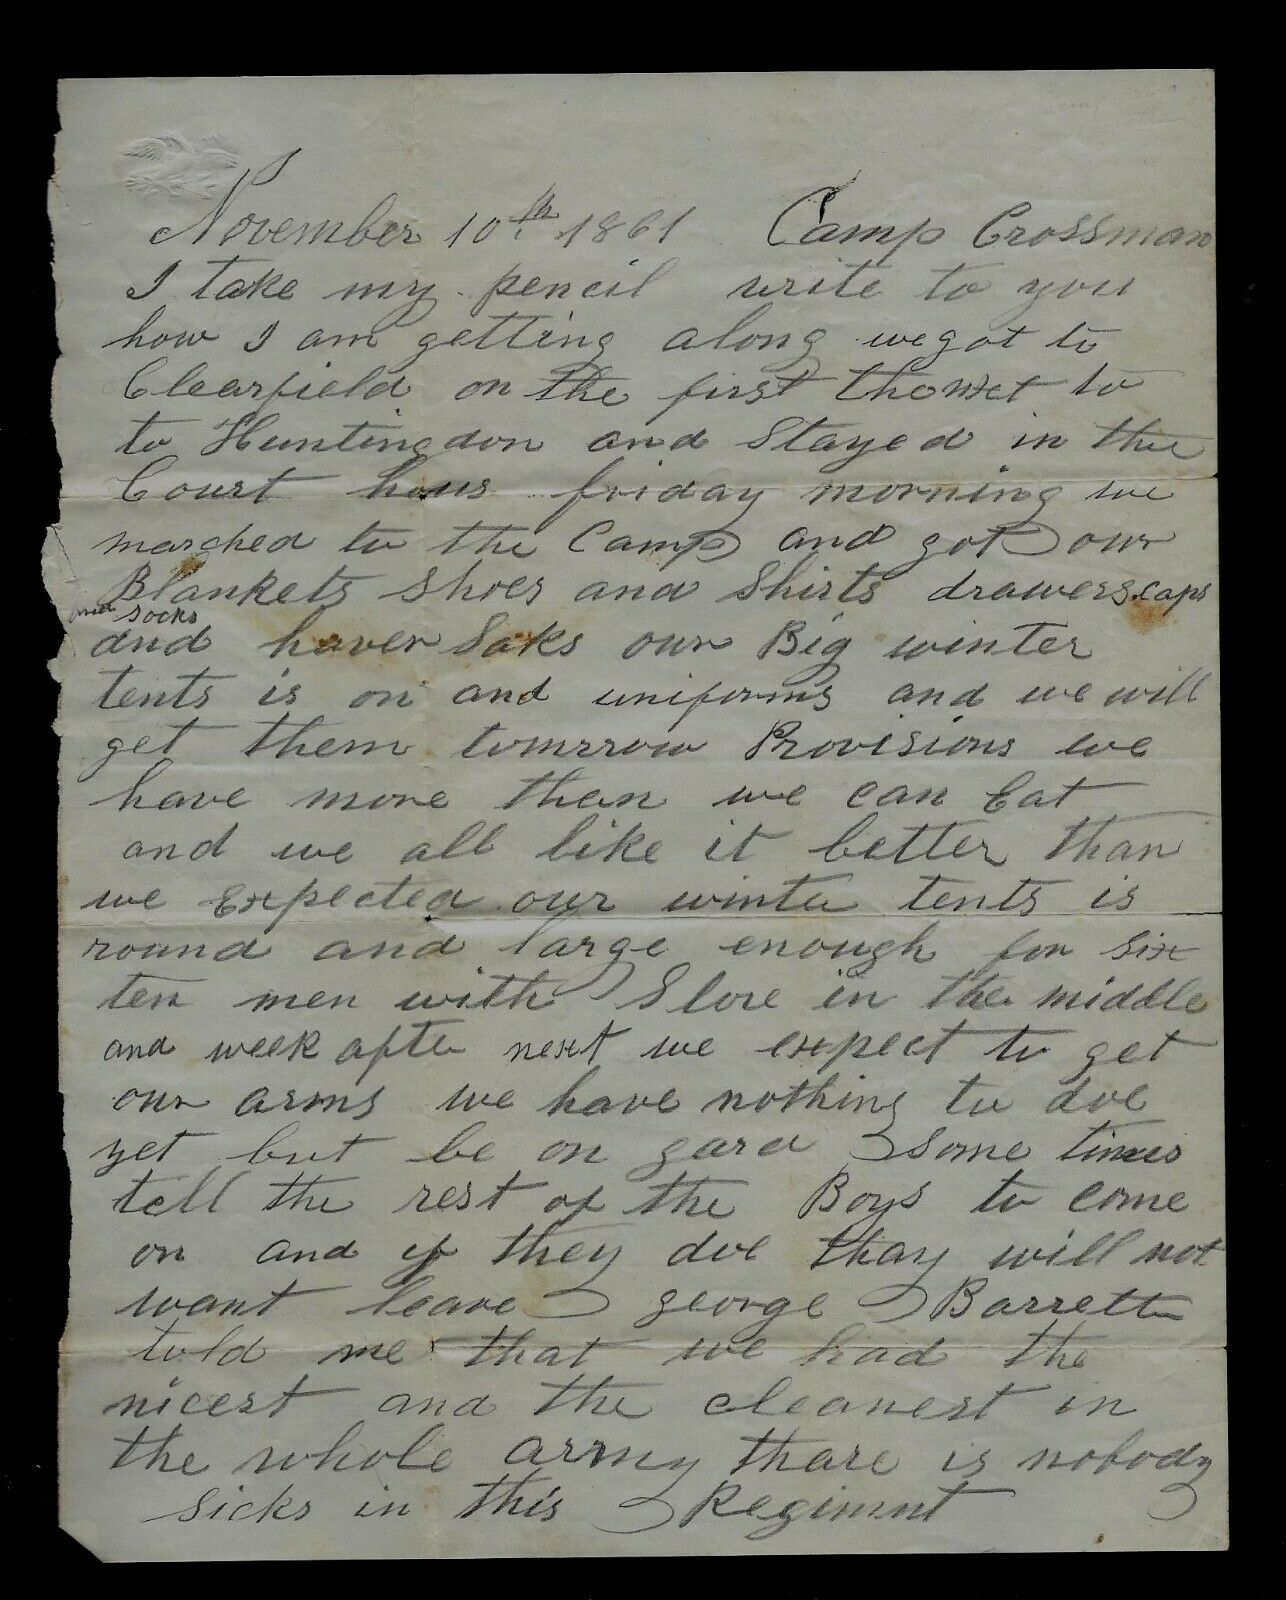 November 10th 1861 Camp Crossman
I take my pencil write to you
how I am getting along we got to
Clearfield on the first the next to
to Huntingdon and Stayed in the
Court hous friday morning we
marched to the Camp and got our
Blankets Shoes and Shirts drawers caps
and socks
and haver Saks our Big winter
tents is on and uniforms and we will
get them tomrrow Provisions we
have more then we can Eat
and we all like it better than
we Expected our winter tents is
round and large enough for six
ten men with Stove in the middle
and week after next we expect to get
our arms we have nothing to doe
yet but be on gard Some times
tell the rest of the Boys to come
on and if they doe thay will not
want leave george Barrett
told me that we had the
nicest and the cleanest in
the whole army thare is nobody
sicks in this Regimnt